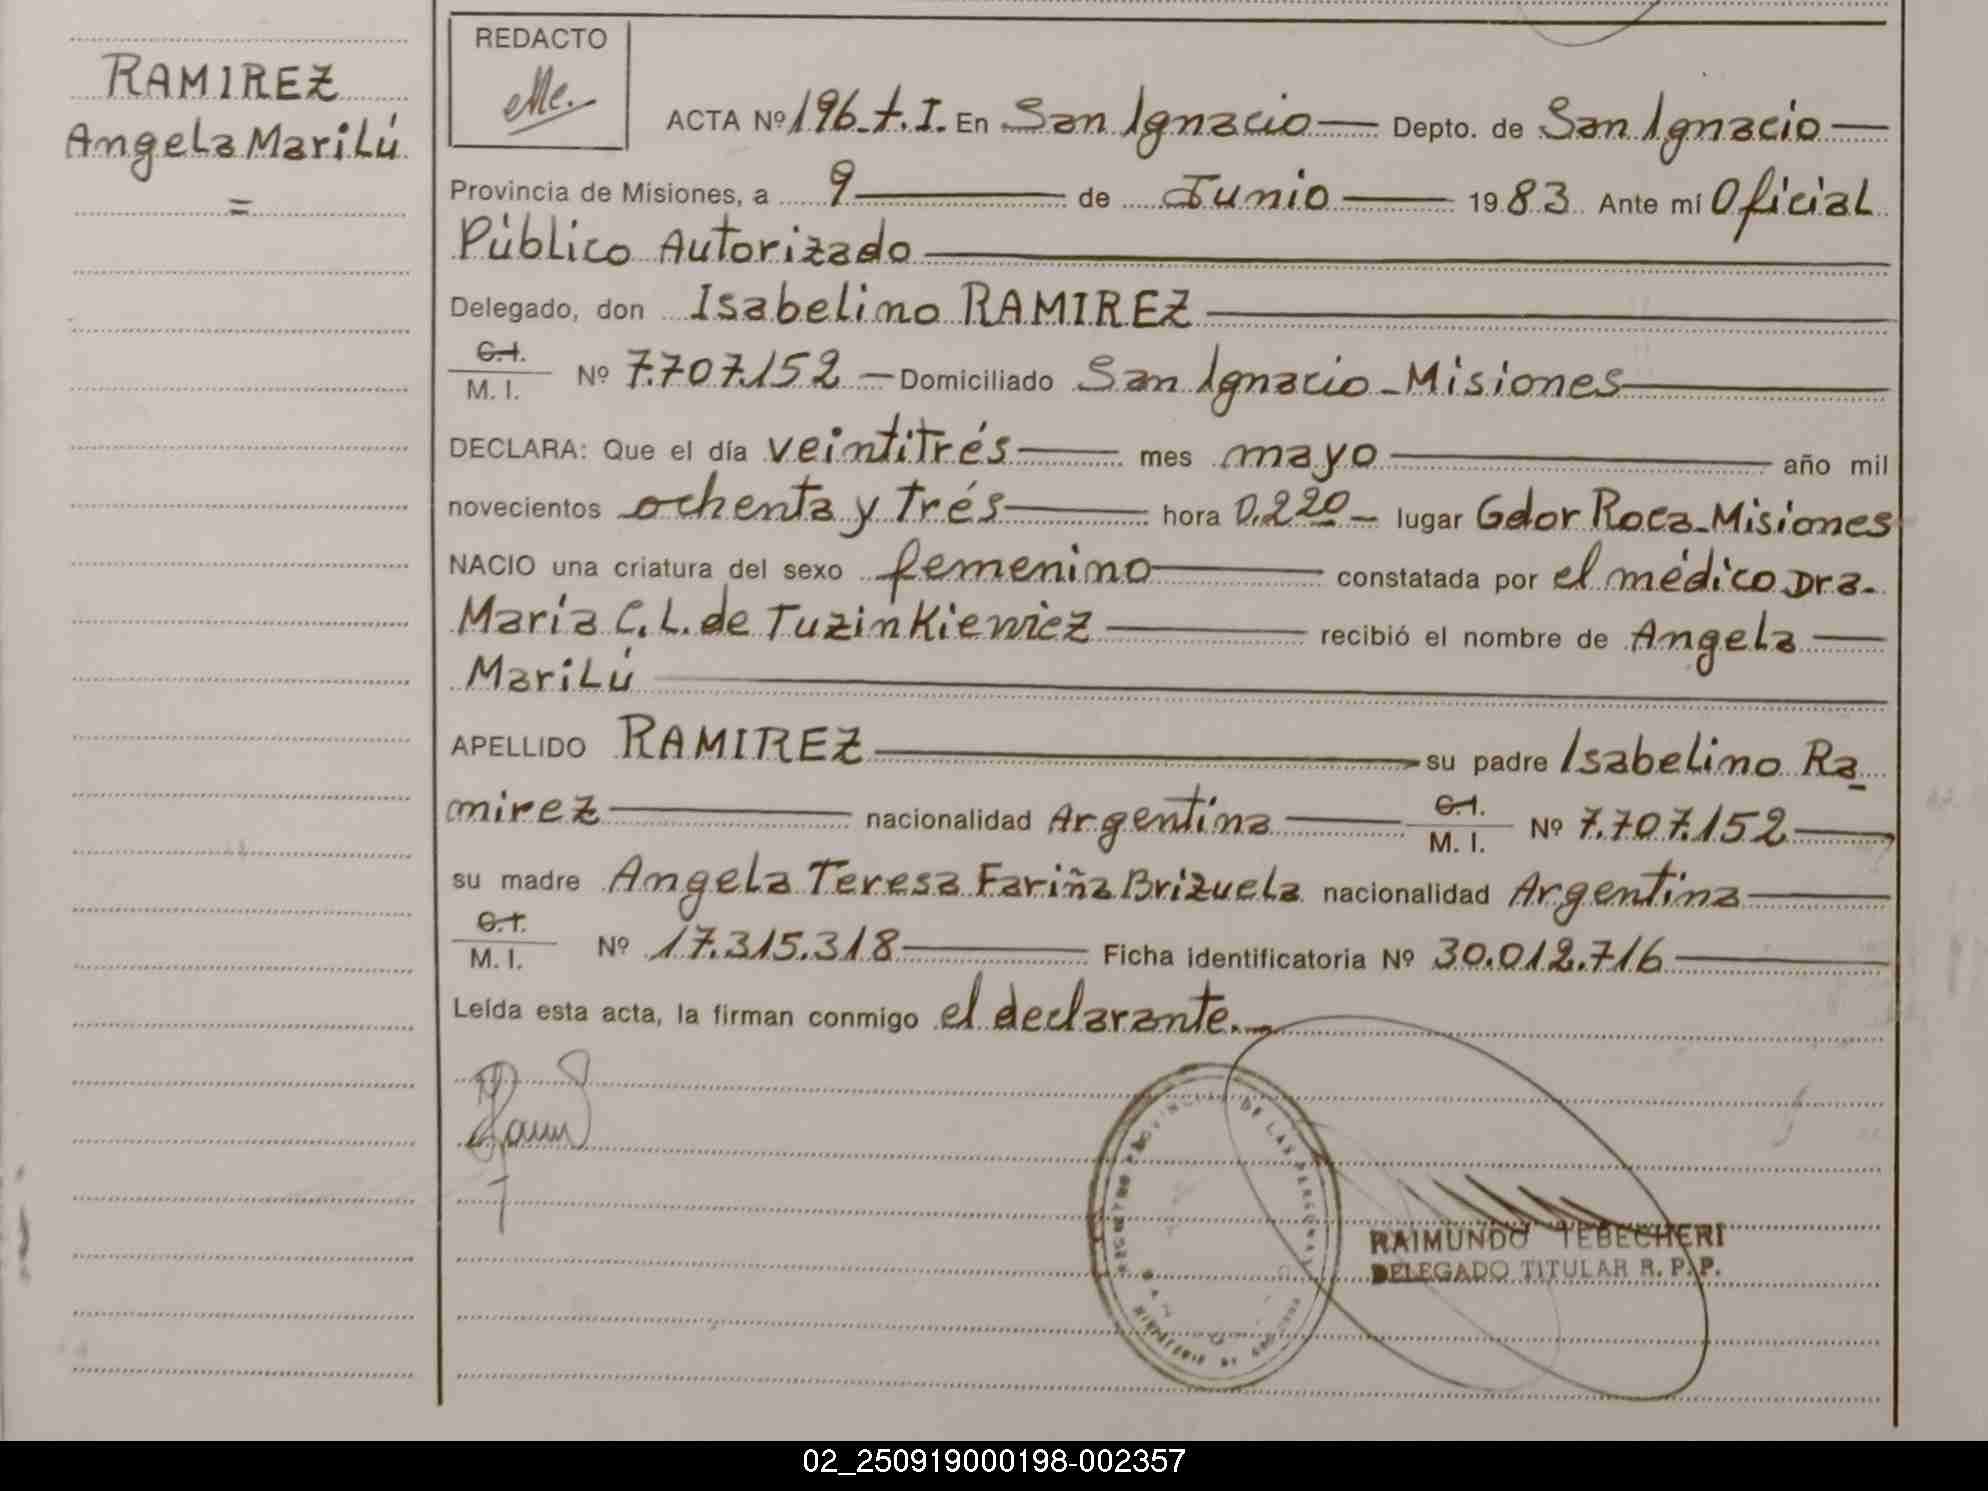 RAMIREZ
Angela Marilú
=
REDACTO
ACTA Nº 196.t.I. En San Ignacio — Depto. de San Ignacio —
Provincia de Misiones, a 9 — de Junio — 1983 Ante mí Oficial
Público Autorizado —
Delegado, don Isabelino RAMIREZ —
C.I.
M. I. Nº 7.707.152 — Domiciliado San Ignacio - Misiones —
DECLARA: Que el día veintitrés — mes mayo — año mil
novecientos ochenta y trés — hora 0,220 - lugar Gdor Roca - Misiones
NACIO una criatura del sexo femenino — constatada por el médico Dra.
María C. L. de Tuzinkiewicz — recibió el nombre de Angela —
Marilú —
APELLIDO RAMIREZ — su padre Isabelino Ra-
mirez — nacionalidad Argentina — C.I. M. I. Nº 7.707.152 —
su madre Angela Teresa Fariña Brizuela nacionalidad Argentina —
C.I.
M. I. Nº 17.315.318 — Ficha identificatoria Nº 30.012.716 —
Leída esta acta, la firman conmigo el declarante.-
PROVINCIAL DE LAS PERSONAS
RAIMUNDO TEBECHERI
DELEGADO TITULAR R. P. P.
02_250919000198-002357